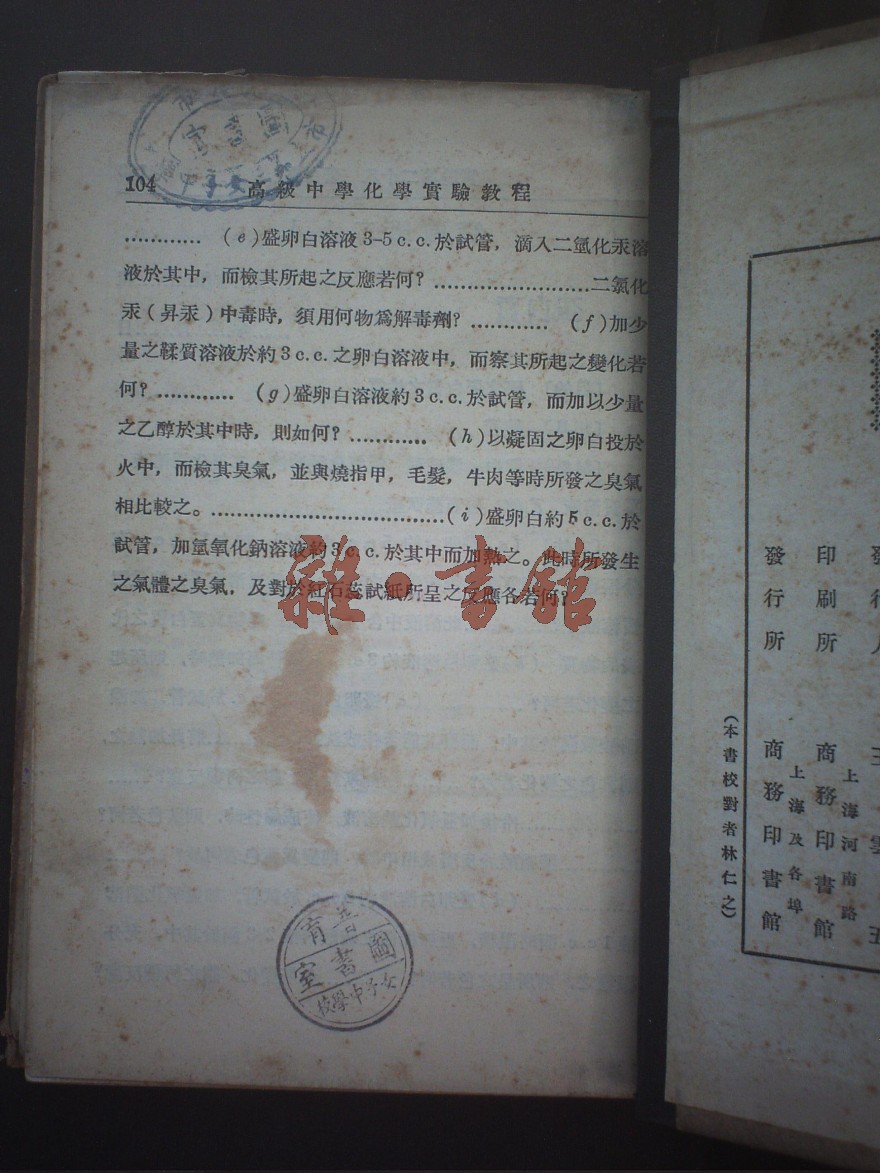 104
高級中學化學實驗教程
………… (e)盛卵白溶液3-5c.c.於試管，滴入二氫化汞溶
液於其中，而檢其所起之反應若何？ ……………………二氯化
汞(昇汞)中毒時，須用何物爲解毒劑？ ………… (f)加少
量之鞣質溶液於約3c.c.之卵白溶液中，而察其所起之變化若
何？ ………… (g)盛卵白溶液約3c.c.於試管，而加以少量
之乙醇於其中時，則如何？ ………… (h)以凝固之卵白投於
火中，而檢其臭氣，並與燒指甲，毛髮，牛肉等時所發之臭氣
相比較之。 ………………………………(i)盛卵白約5c.c.於
試管，加氫氧化鈉溶液約3c.c.於其中而加熱之。此時所發生
之氣體之臭氣，及對於紅石蕊試紙所呈之反應各若何？
雜·書館
圖書室
女子中學校
發行人
印刷所 上海河南路 商務印書館
發行所 上海及各埠 商務印書館
(本書校對者林仁之)